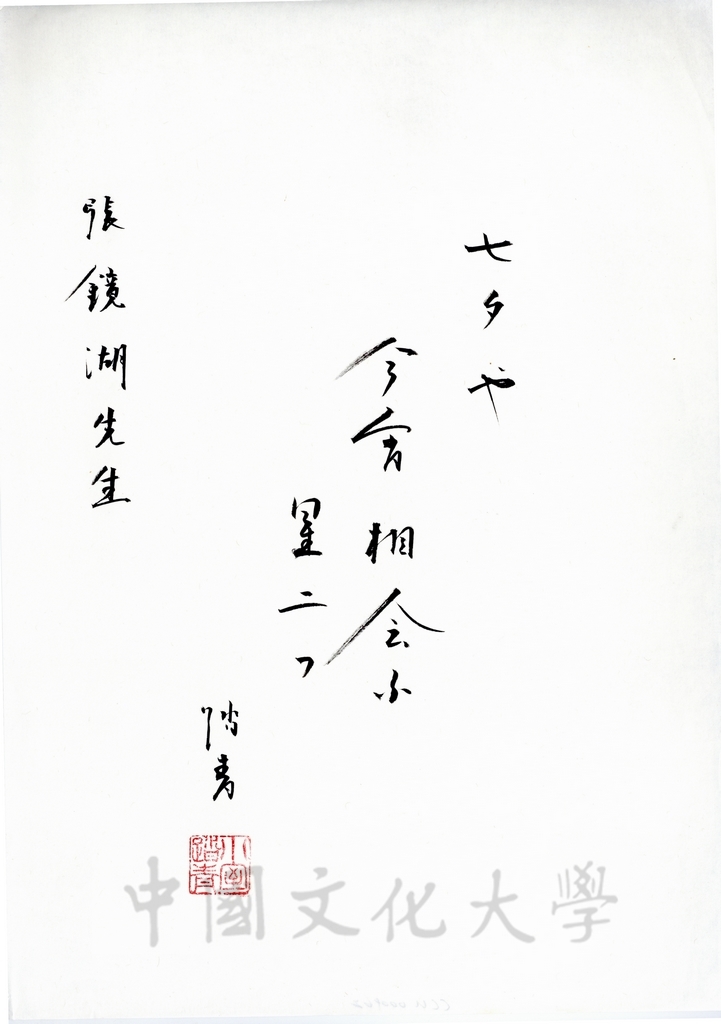 七夕や
今宵相会ふ
星二つ
踏青
張鏡湖先生
中國文化大學